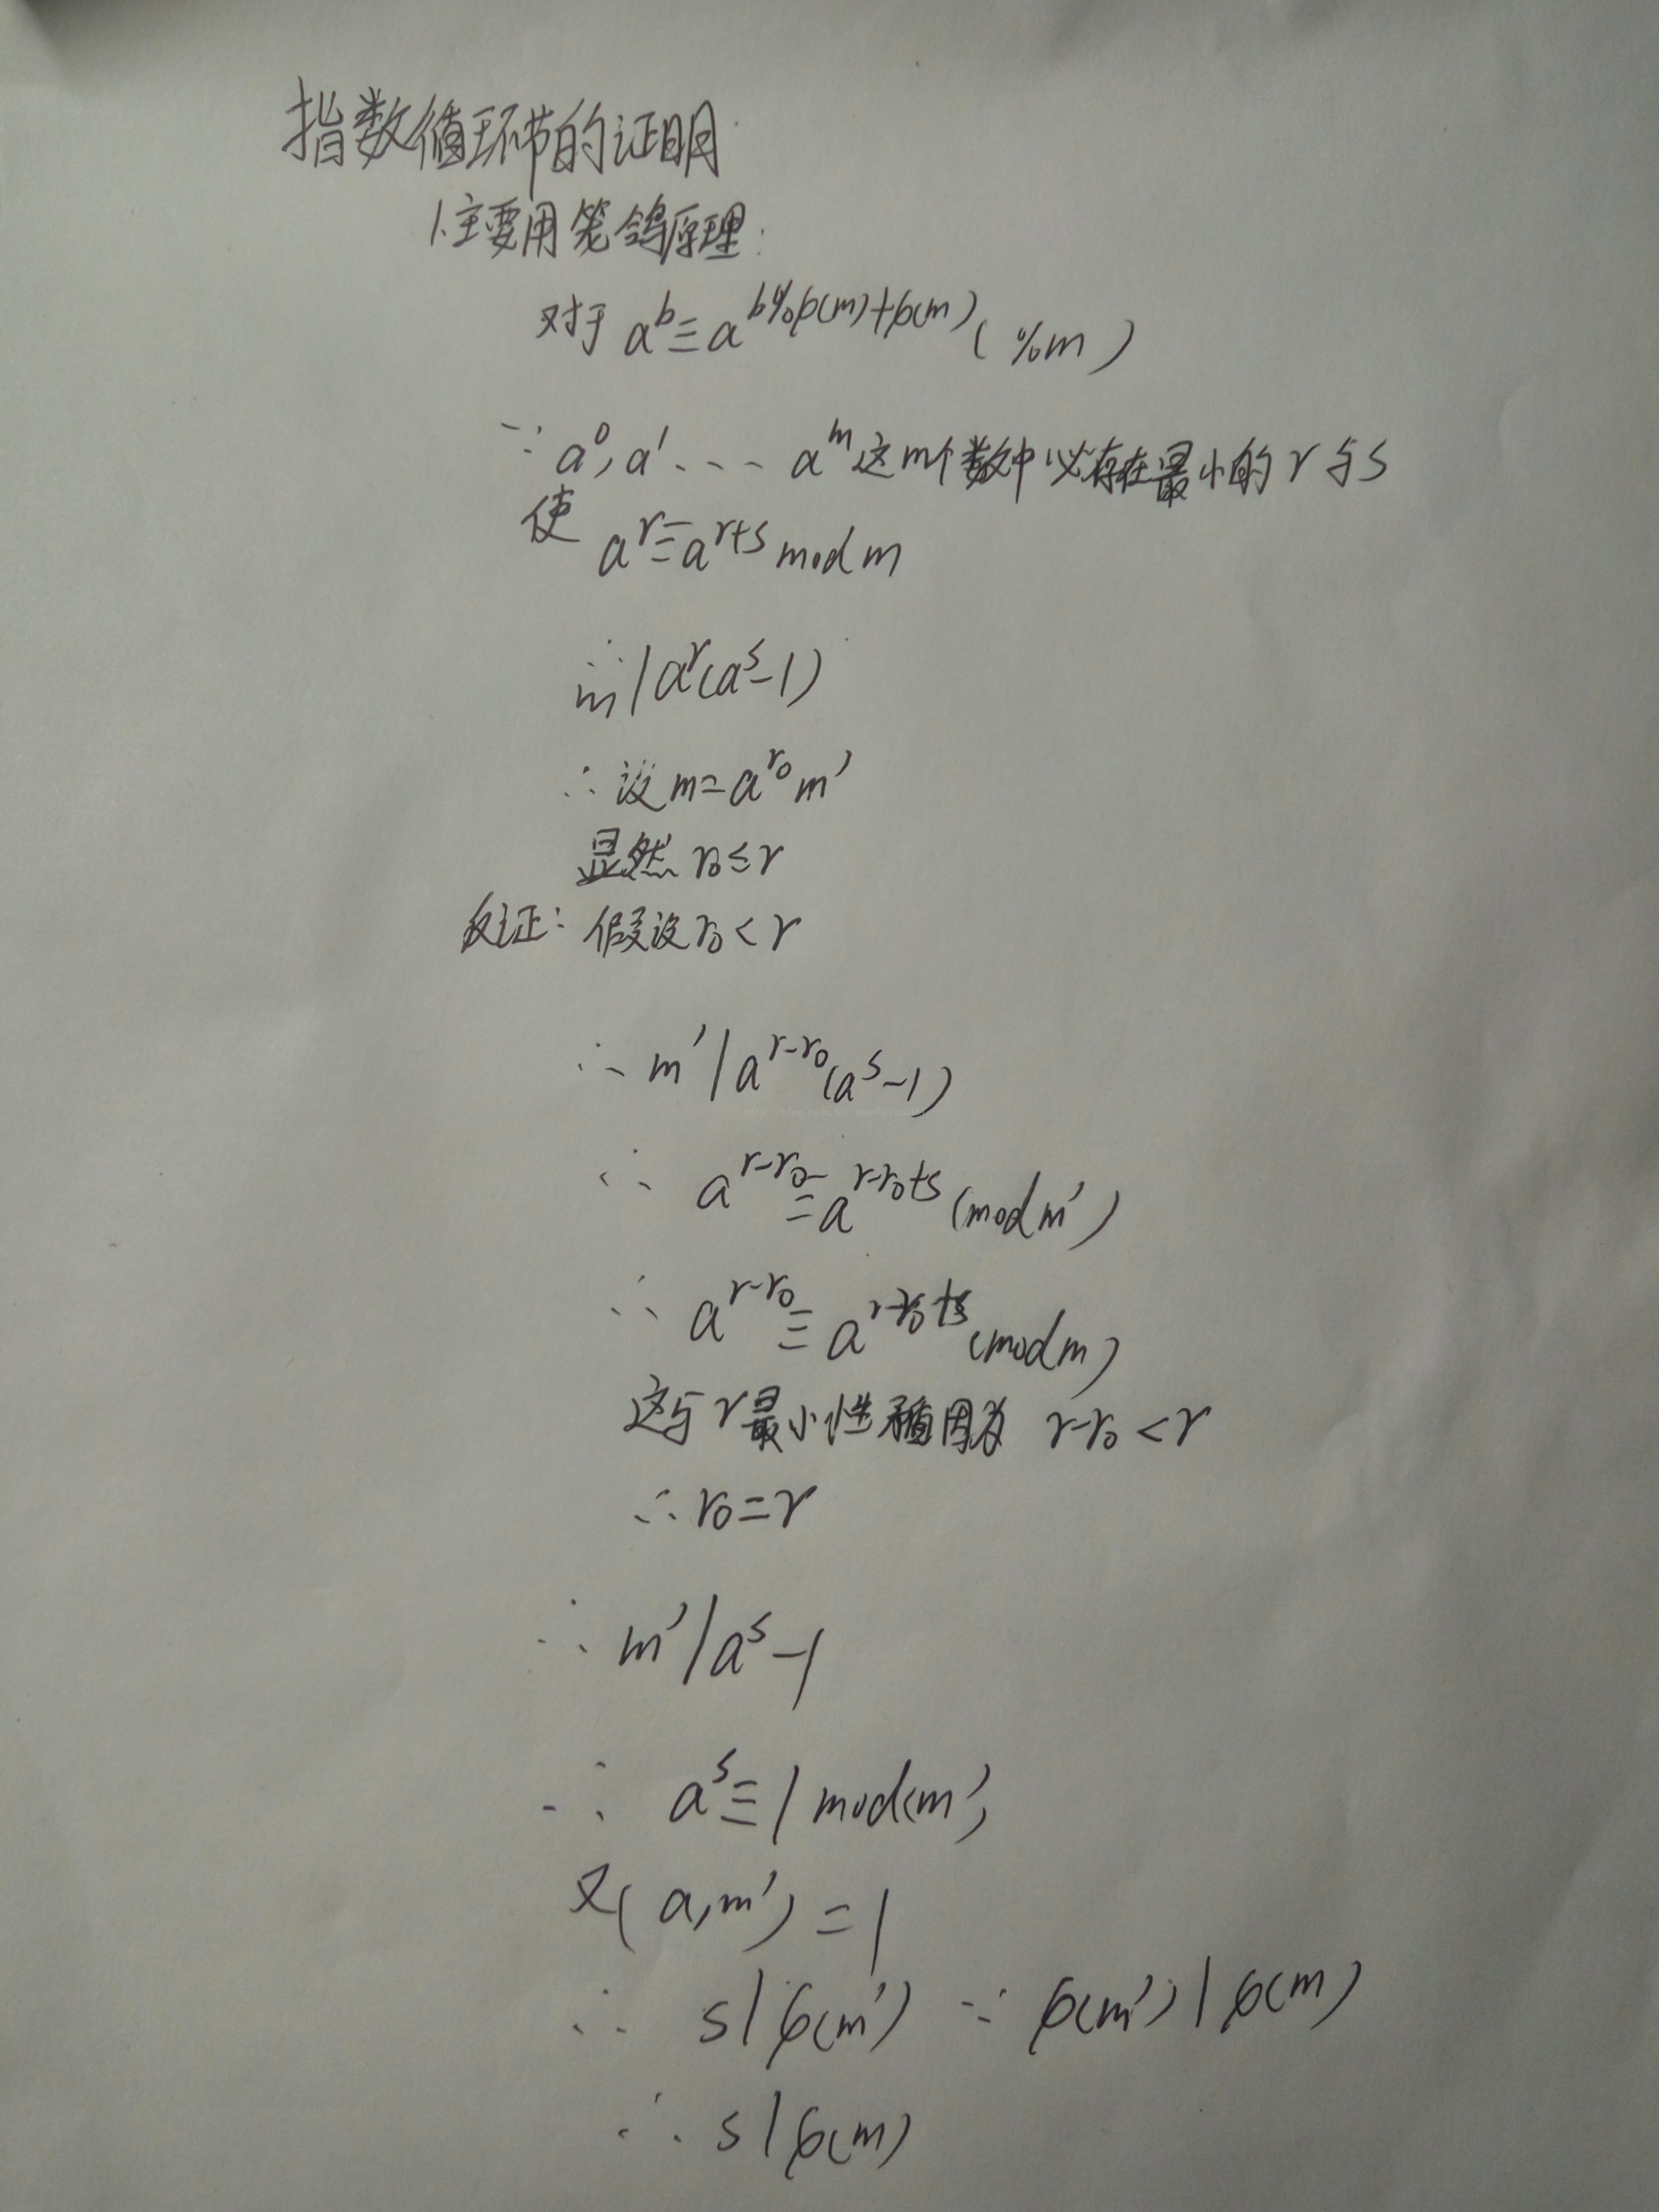 指数循环节的证明:
1.主要用笼鸽原理:
对于 a^b≡a^{b%φ(m)+φ(m)} (%m)
∵ a^0, a^1 、--- a^m 这m个数中必存在最小的 r 与 s
使 a^r≡a^{r+s} mod m
∴ m | a^r(a^s-1)
∴ 设 m=a^{r₀} m'
显然 r₀≤r
反证: 假设 r₀<r
∴ m' | a^{r-r₀}(a^s-1)
∴ a^{r-r₀}≡a^{r-r₀+s} (mod m')
∴ a^{r-r₀}≡a^{r-r₀+s} (mod m)
这与 r 最小性矛盾因为 r-r₀<r
∴ r₀=r
∴ m' | a^s-1
∴ a^s≡1 mod(m')
又( a, m') = 1
∴ s | φ(m') ∵ φ(m') | φ(m)
∴ s | φ(m)